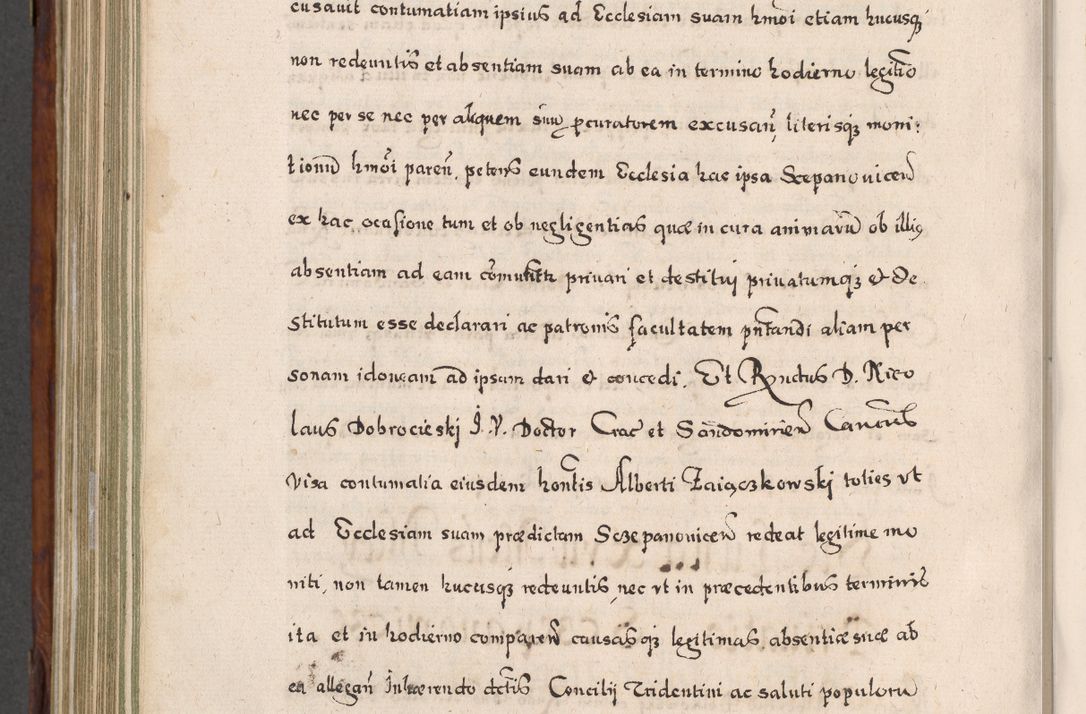 cusavit contumatiam ipsius ad Ecclesiam suam hmõi etiam hucusq́
non redeuntis et absentiam suam ab ea in termino hodierno legitĩo
nec per se nec per aliquem suũ ꝓcuratorem excusañ, literisqꝫ moni:
tionũ hmõi pareñ, petens eundem Ecclesia hac ipsa Sczepanouiceñ
ex hac ocasione tum et ob negligentias quæ in cura animarũ ob illiꝰ
absentiam ad eam cõmittitr privari et destitui privatumqꝫ & de
stitutum esse declarari ac patronis facultatem pñtandi aliam per
sonam idoneam ad ipsam dari & concedi. Et Rndus D. Nico
laus Dobrocieski J. V. Doctor Crac et Sandomirieñ Cancus
visa contumatia eiusdem hontis Alberti Zaiączkowski toties vt
ad Ecclesiam suam prædictam Sczepanouiceñ redeat legitime mo
niti, non tamen hucusqꝫ redeuntis, nec vt in præcedentibus terminis
ita et in hodierno compareñ causasqꝫ legitimas absentiæ suæ ab
ea allegañ Inhærendo dctis Concilij Tridentini ac saluti populorũ